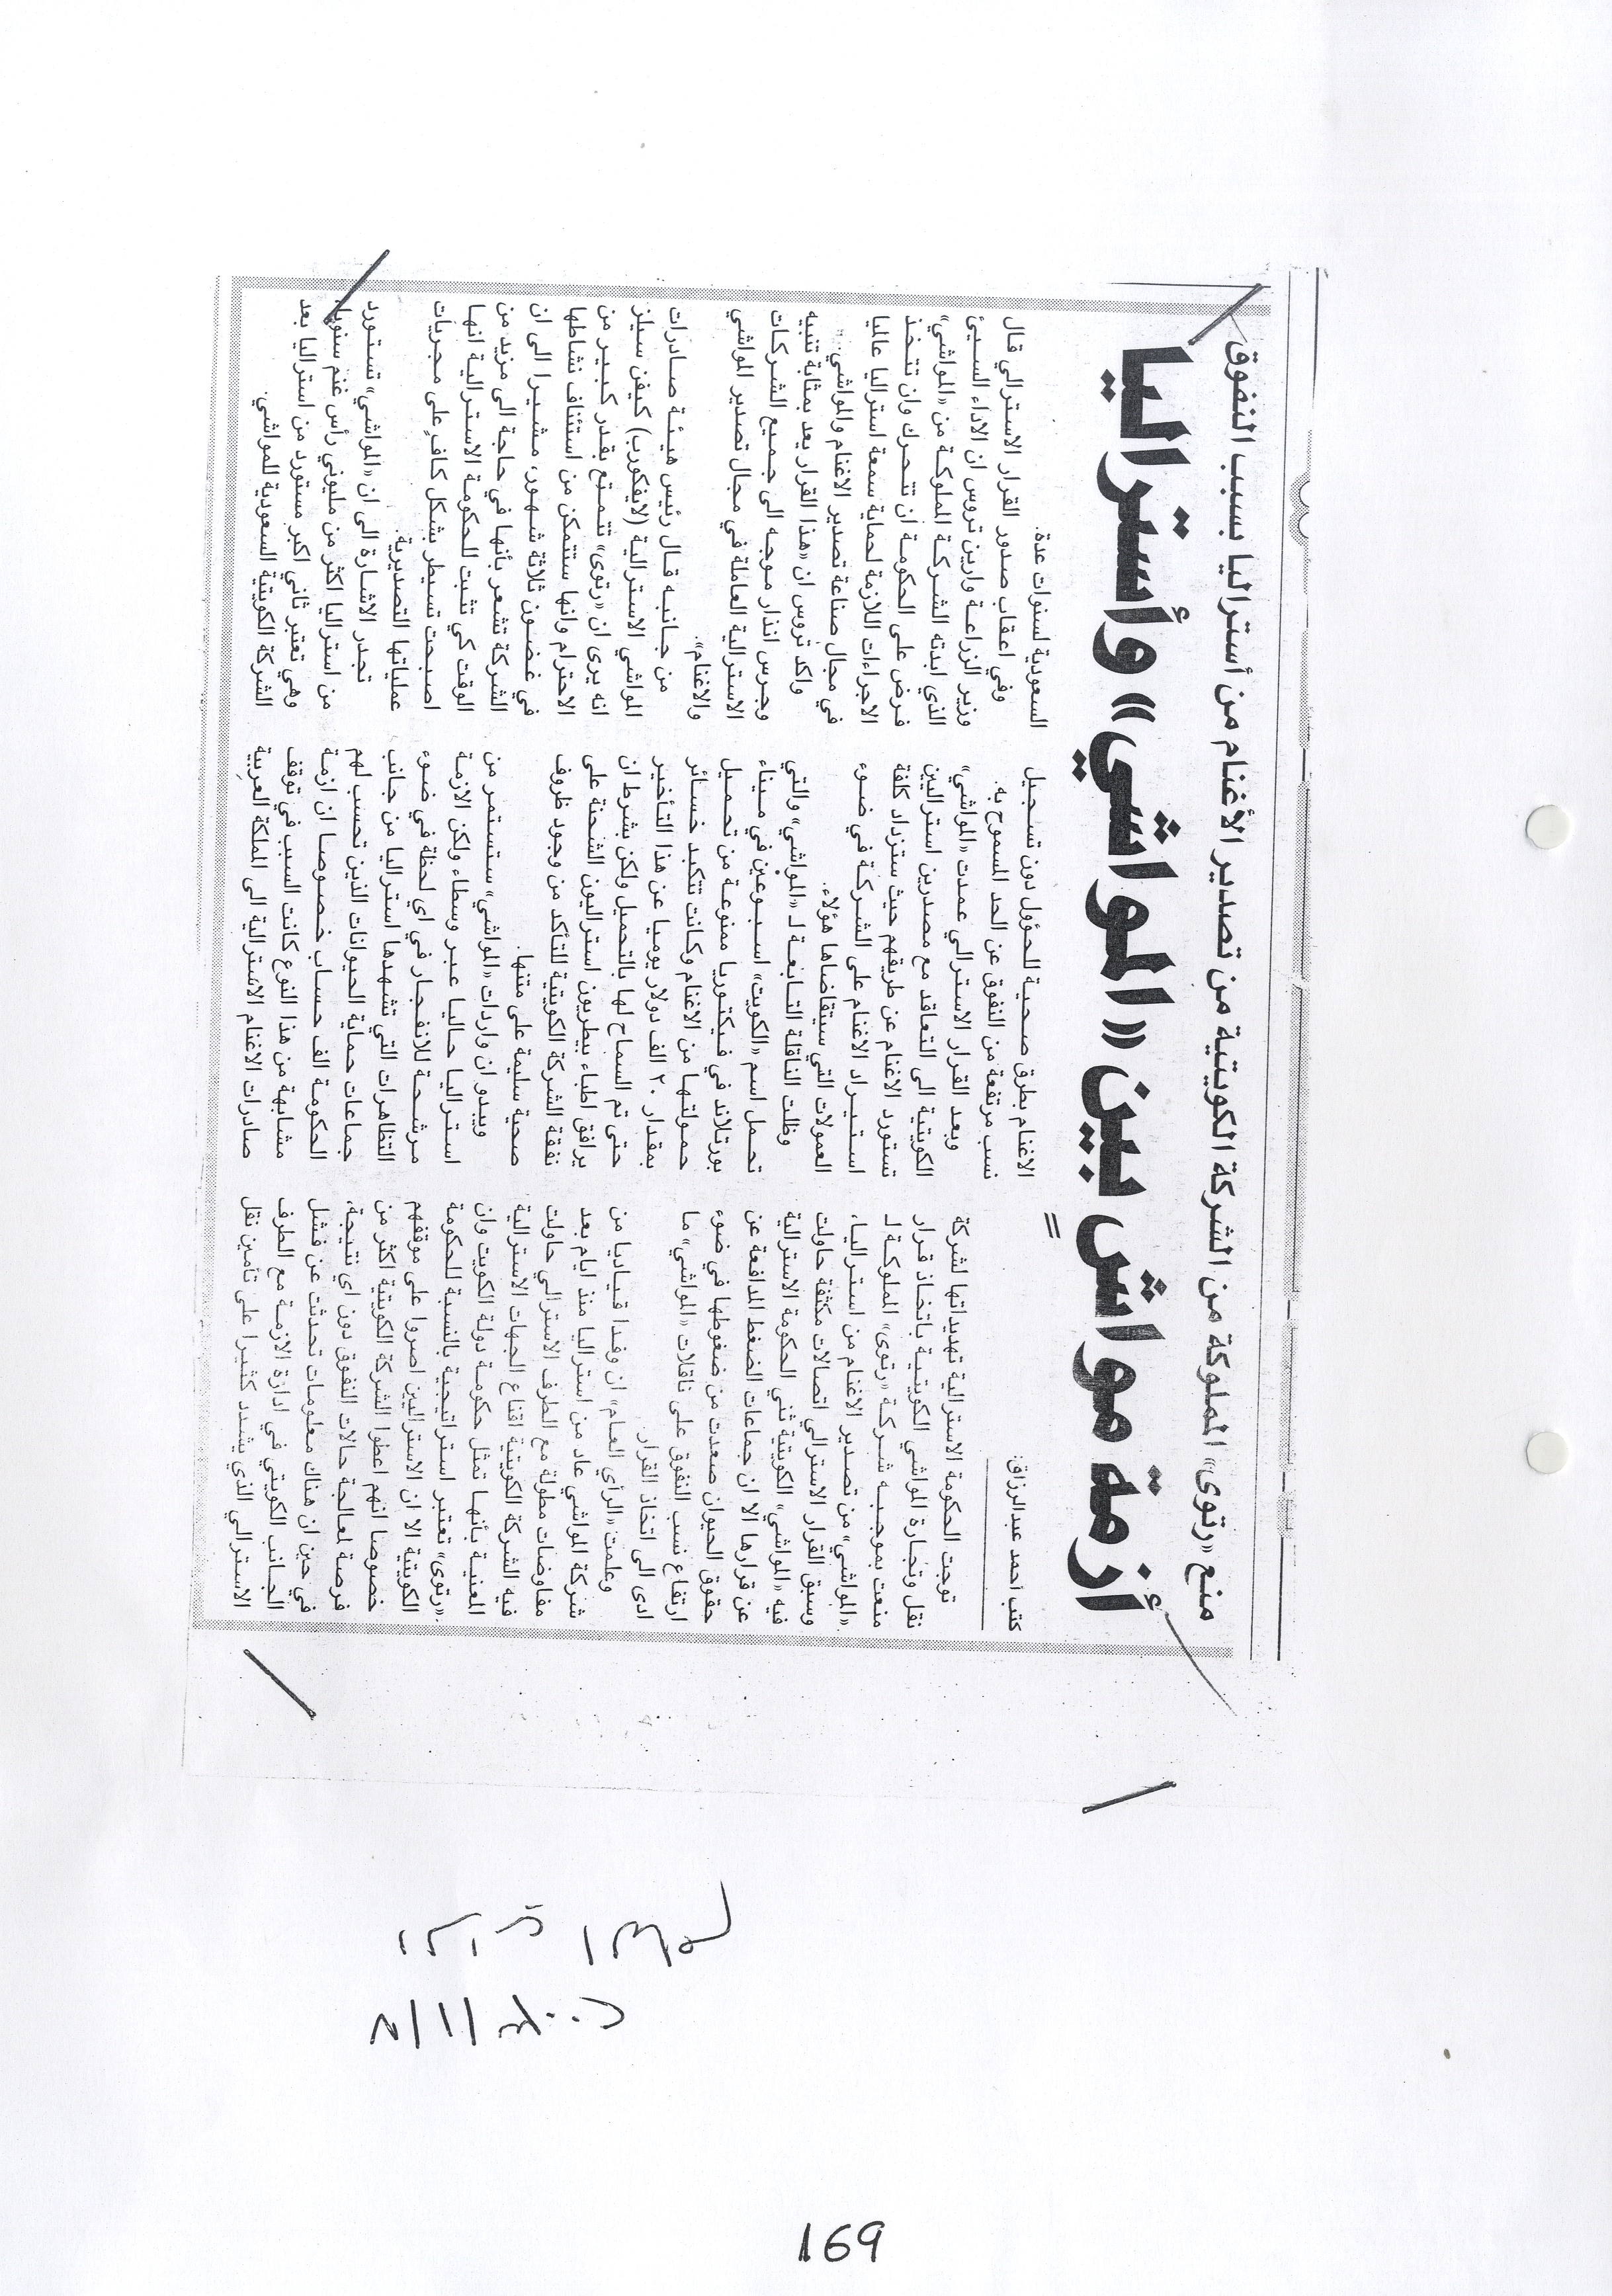 منع «رتوى» المملوكة من الشركة الكويتية من تصدير الأغنام من أستراليا بسبب النفوق
أزمة مواش بين «المواشي» وأستراليا
كتب أحمد عبدالرزاق:
توجت الحكومة الاسترالية تهديداتها لشركة
نقل وتجارة المواشي الكويتية باتخاذ قرار
منعت بموجبه شركة «رتوى» المملوكة لـ
«المواشي» من تصدير الاغنام من استراليا،
وسبق القرار الاسترالي اتصالات مكثفة حاولت
فيه «المواشي» الكويتية ثني الحكومة الاسترالية
عن قرارها الا ان جماعات الضغط المدافعة عن
حقوق الحيوان صعدت من ضغوطها في ضوء
ارتفاع نسب النفوق على ناقلات «المواشي» ما
ادى الى اتخاذ القرار.
وعلمت «الرأي العام» ان وفدا قياديا من
شركة المواشي عاد من استراليا منذ ايام بعد
مفاوضات مطولة مع الطرف الاسترالي حاولت
فيه الشركة الكويتية اقناع الجهات الاسترالية
المعنية بأنها تمثل حكومة دولة الكويت وان
«رتوى» تعتبر استراتيجية بالنسبة للحكومة
الكويتية الا ان الاستراليين اصروا على موقفهم
خصوصا انهم اعطوا الشركة الكويتية اكثر من
فرصة لمعالجة حالات النفوق دون اي نتيجة،
في حين ان هناك معلومات تحدثت عن فشل
الجانب الكويتي في ادارة الازمة مع الطرف
الاسترالي الذي يشدد كثيرا على تأمين نقل
الاغنام بطرق صحية للحؤول دون تسجيل
نسب مرتفعة من النفوق عن الحد المسموح به.
وبعد القرار الاسترالي عمدت «المواشي»
الكويتية الى التعاقد مع مصدرين استراليين
تستورد الاغنام عن طريقهم حيث ستزداد كلفة
استيراد الاغنام على الشركة في ضوء
العمولات التي سيتقاضاها هؤلاء.
وظلت الناقلة التابعة لـ «المواشي» والتي
تحمل اسم «الكويت» اسبوعين في ميناء
بورتلاند في فيكتوريا ممنوعة من تحميل
حمولتها من الاغنام وكانت تتكبد خسائر
بمقدار ٢٠ الف دولار يوميا عن هذا التأخير
حتى تم السماح لها بالتحميل ولكن بشرط ان
يرافق اطباء بيطريون استراليون الشحنة على
نفقة الشركة الكويتية للتأكد من وجود ظروف
صحية سليمة على متنها.
ويبدو ان واردات «المواشي» ستستمر من
استراليا حاليا عبر وسطاء ولكن الازمة
مرشحة للانفجار في اي لحظة في ضوء
التظاهرات التي تشهدها استراليا من جانب
جماعات حماية الحيوانات الذين تحسب لهم
الحكومة الف حساب خصوصا ان ازمة
مشابهة من هذا النوع كانت السبب في توقف
صادرات الاغنام الاسترالية الى المملكة العربية
السعودية لسنوات عدة.
وفي اعقاب صدور القرار الاسترالي قال
وزير الزراعة وارين تروس ان الاداء السيئ
الذي ابدته الشركة المملوكة من «المواشي»
فرض على الحكومة ان تتحرك وان تتخذ
الاجراءات اللازمة لحماية سمعة استراليا عالميا
في مجال صناعة تصدير الاغنام والمواشي.
واكد تروس ان «هذا القرار يعد بمثابة تنبيه
وجرس انذار موجه الى جميع الشركات
الاسترالية العاملة في مجال تصدير المواشي
والاغنام».
من جانبه قال رئيس هيئة صادرات
المواشي الاسترالية (لايفكورب) كيفن سيلز
انه يرى ان «رتوى» تتمتع بقدر كبير من
الاحترام وانها ستتمكن من استئناف نشاطها
في غضون ثلاثة شهور، مشيرا الى ان
الشركة تشعر بأنها في حاجة الى مزيد من
الوقت كي تثبت للحكومة الاسترالية انها
اصبحت تسيطر بشكل كاف على مجريات
عملياتها التصديرية.
تجدر الاشارة الى ان «المواشي» تستورد
من استراليا اكثر من مليوني رأس غنم سنويا،
وهي تعتبر ثاني اكبر مستورد من استراليا بعد
الشركة الكويتية السعودية للمواشي.
169